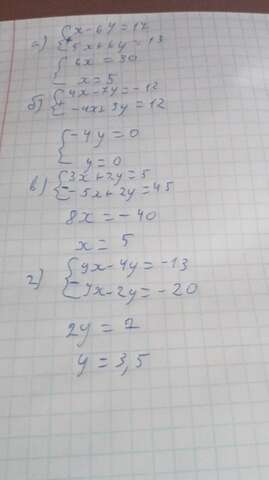 а) {x-6y=17
5x+6y=13
{6x=30
x=5
б) {4x-7y=-12
-4x+3y=12
{-4y=0
y=0
в) {3x+2y=5
-5x+2y=45
8x=-40
x=5
г) {9x-4y=-13
9x-2y=-20
2y=7
y=3,5